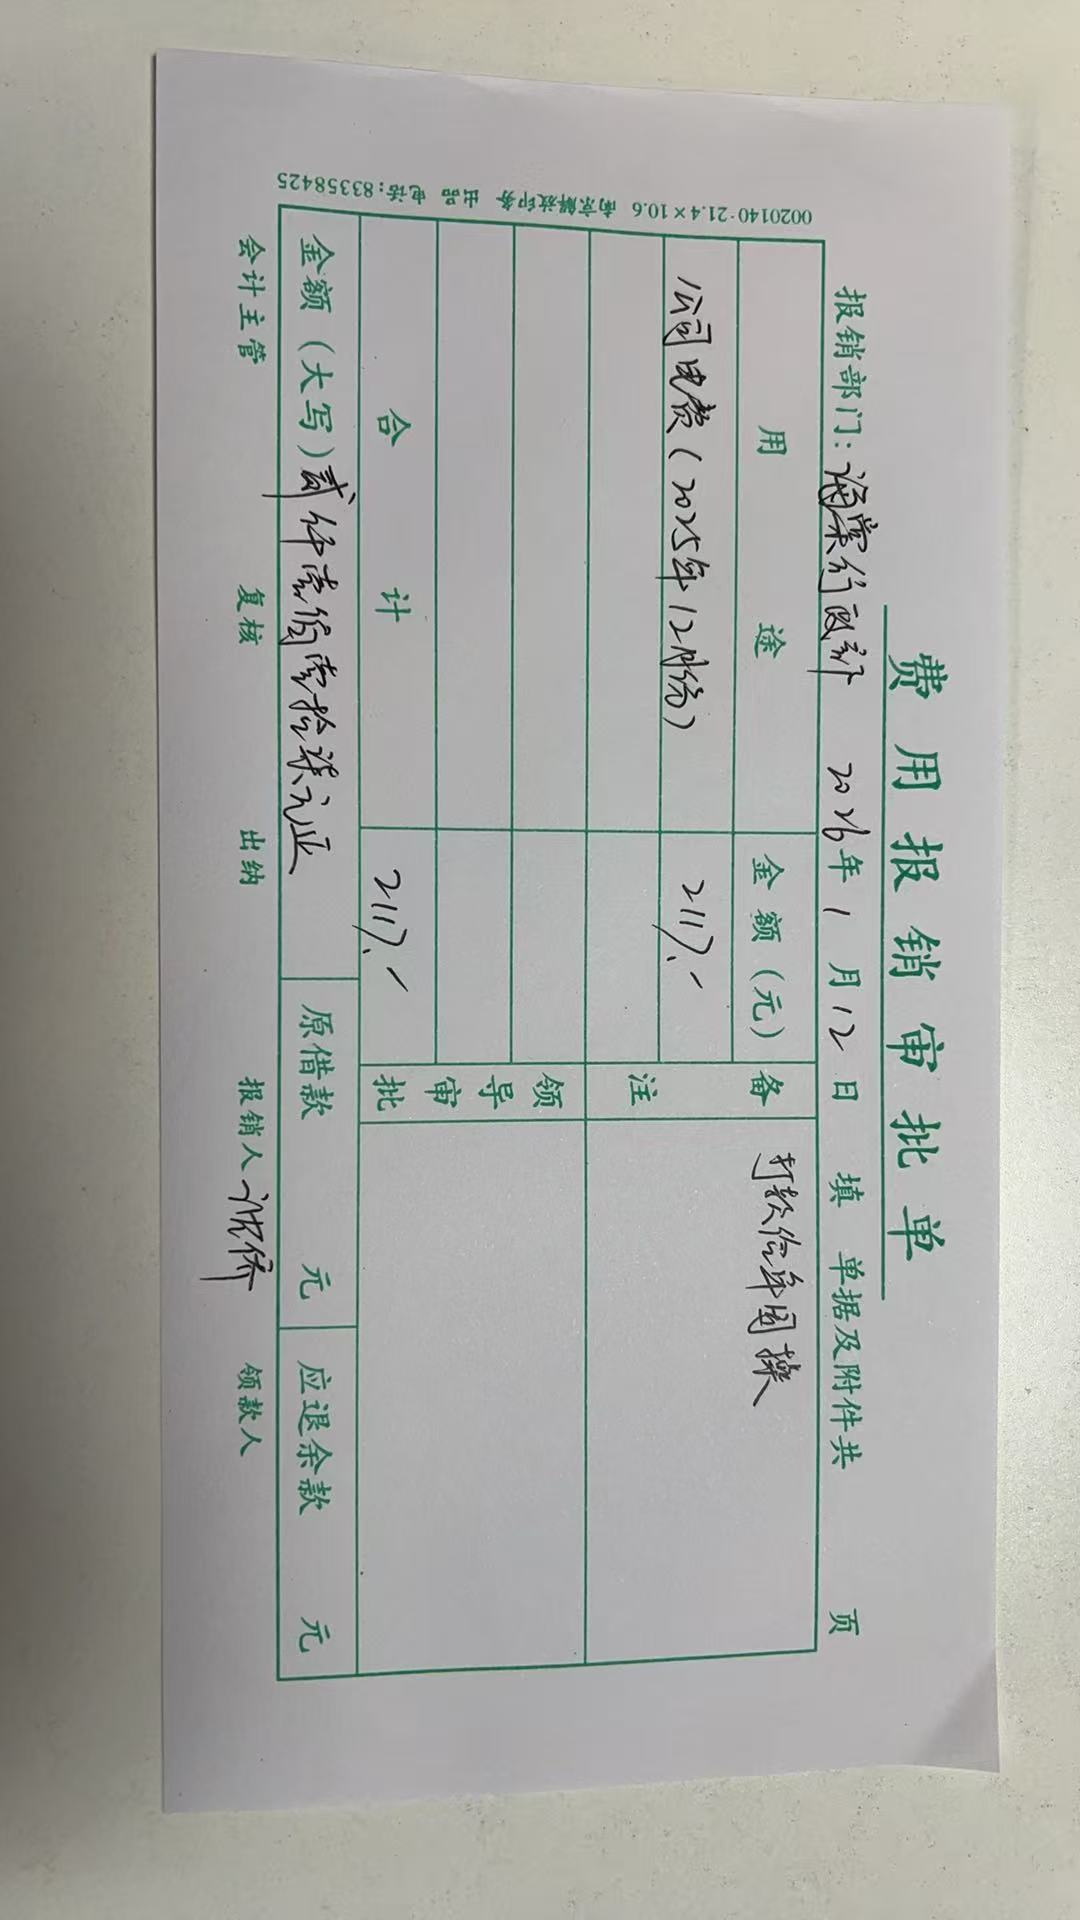 费用报销审批单
报销部门：海棠行政部 2026年1月12日 填 单据及附件共 页
用途 金额(元) 备注 打款给单国操
公司电费(2025年12月份) 2117.-
领导审批
合计 2117.-
金额(大写)贰仟壹佰壹拾柒元正 原借款 元 应退余款 元
会计主管 复核 出纳 报销人 沈侨 领款人
0020140·21.4×10.6 南京解放印务 出品 电话:83358425